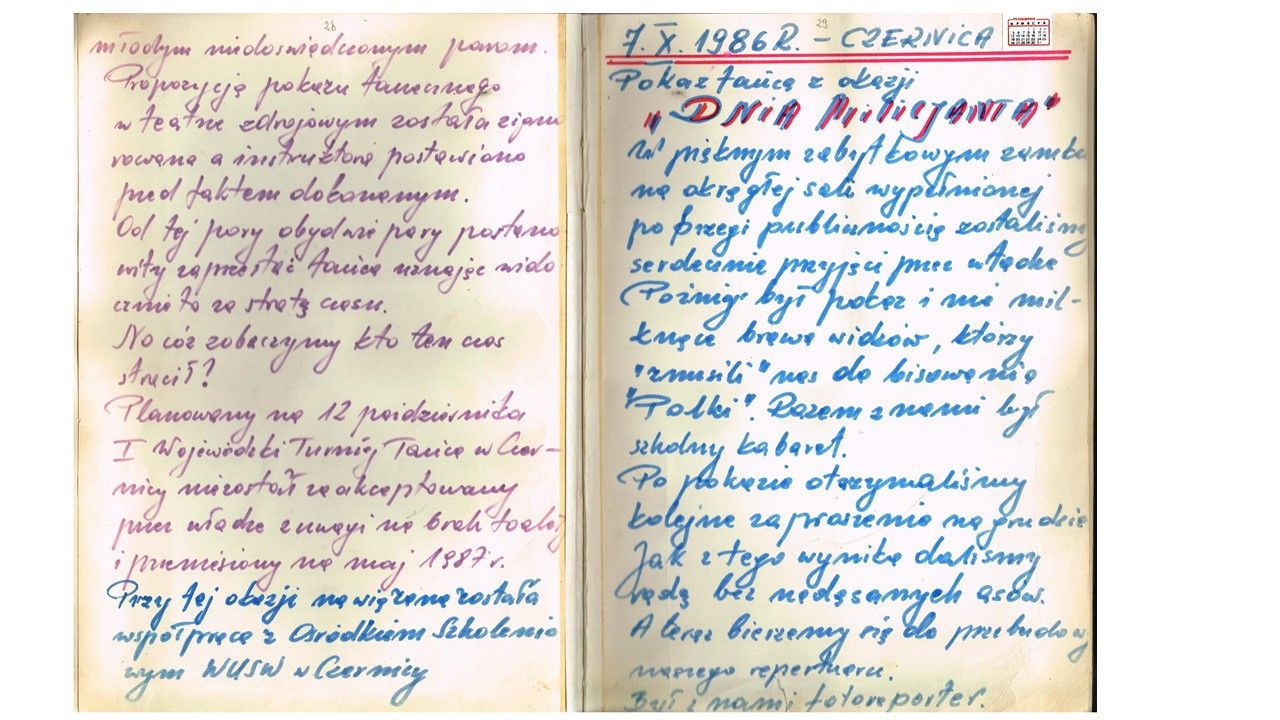 28
młodym niedoświadczonym parom.
Propozycja pokazu tanecznego
w teatrze zdrojowym została zigno
rowana a instruktora postawiono
przed faktem dokonanym.
Od tej pory obydwie pary postano
wiły zaprzestać tańca uznając wido
cznie to za stratę czasu.
No cóż zobaczymy kto ten czas
stracił?
Planowany na 12 października
I Wojewódzki Turniej Tańca w Czer-
nicy niezostał zaakceptowany
przez władze z uwagi na brak toalet
i przeniesiony na maj 1987 r.
Przy tej okazji nawiązana została
współpraca z Ośrodkiem Szkolenio
wym WUSW w Czernicy
29
7. X. 1986 R. - CZERNICA
Pokaz tańca z okazji
"DNIA MILICJANTA"
W pięknym zabytkowym zamku
na okrągłej sali wypełnionej
po brzegi publicznością zostaliśmy
serdecznie przyjęci przez władze
Później był pokaz i nie mil-
knące brawa widzów, którzy
"zmusili" nas do bisowania
"Polki". Razem z nami był
szkolny kabaret.
Po pokazie otrzymaliśmy
kolejne zaproszenie na grudzień
Jak z tego wynika daliśmy
radę bez nadąsanych asów.
A teraz bierzemy się do przebudowy
naszego repertuaru.
Był z nami fotoreporter.